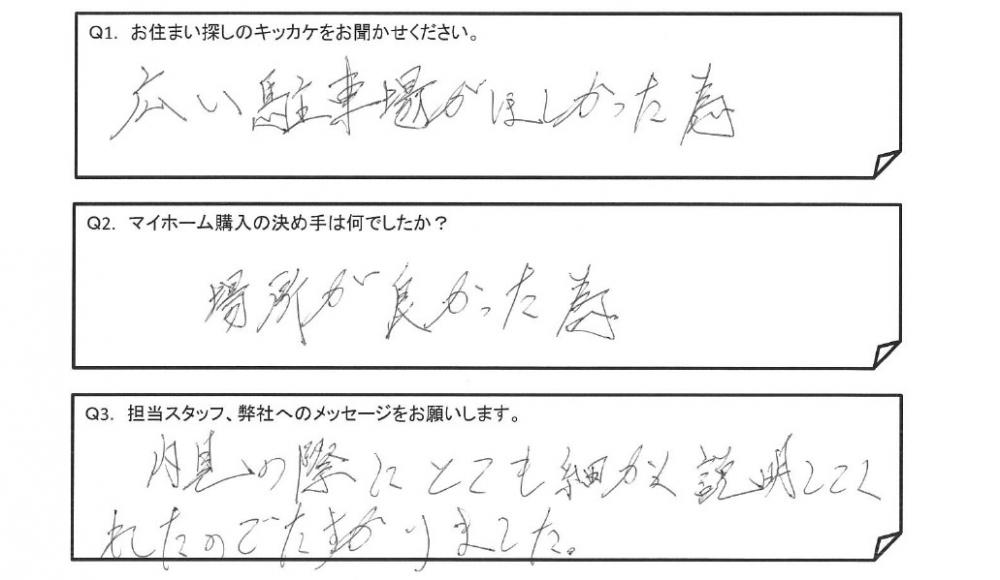 Q1. お住まい探しのキッカケをお聞かせください。
広い駐車場がほしかった為
Q2. マイホーム購入の決め手は何でしたか？
場所が良かった為
Q3. 担当スタッフ、弊社へのメッセージをお願いします。
内見の際にとても細かく説明してく
れたのでたすかりました。